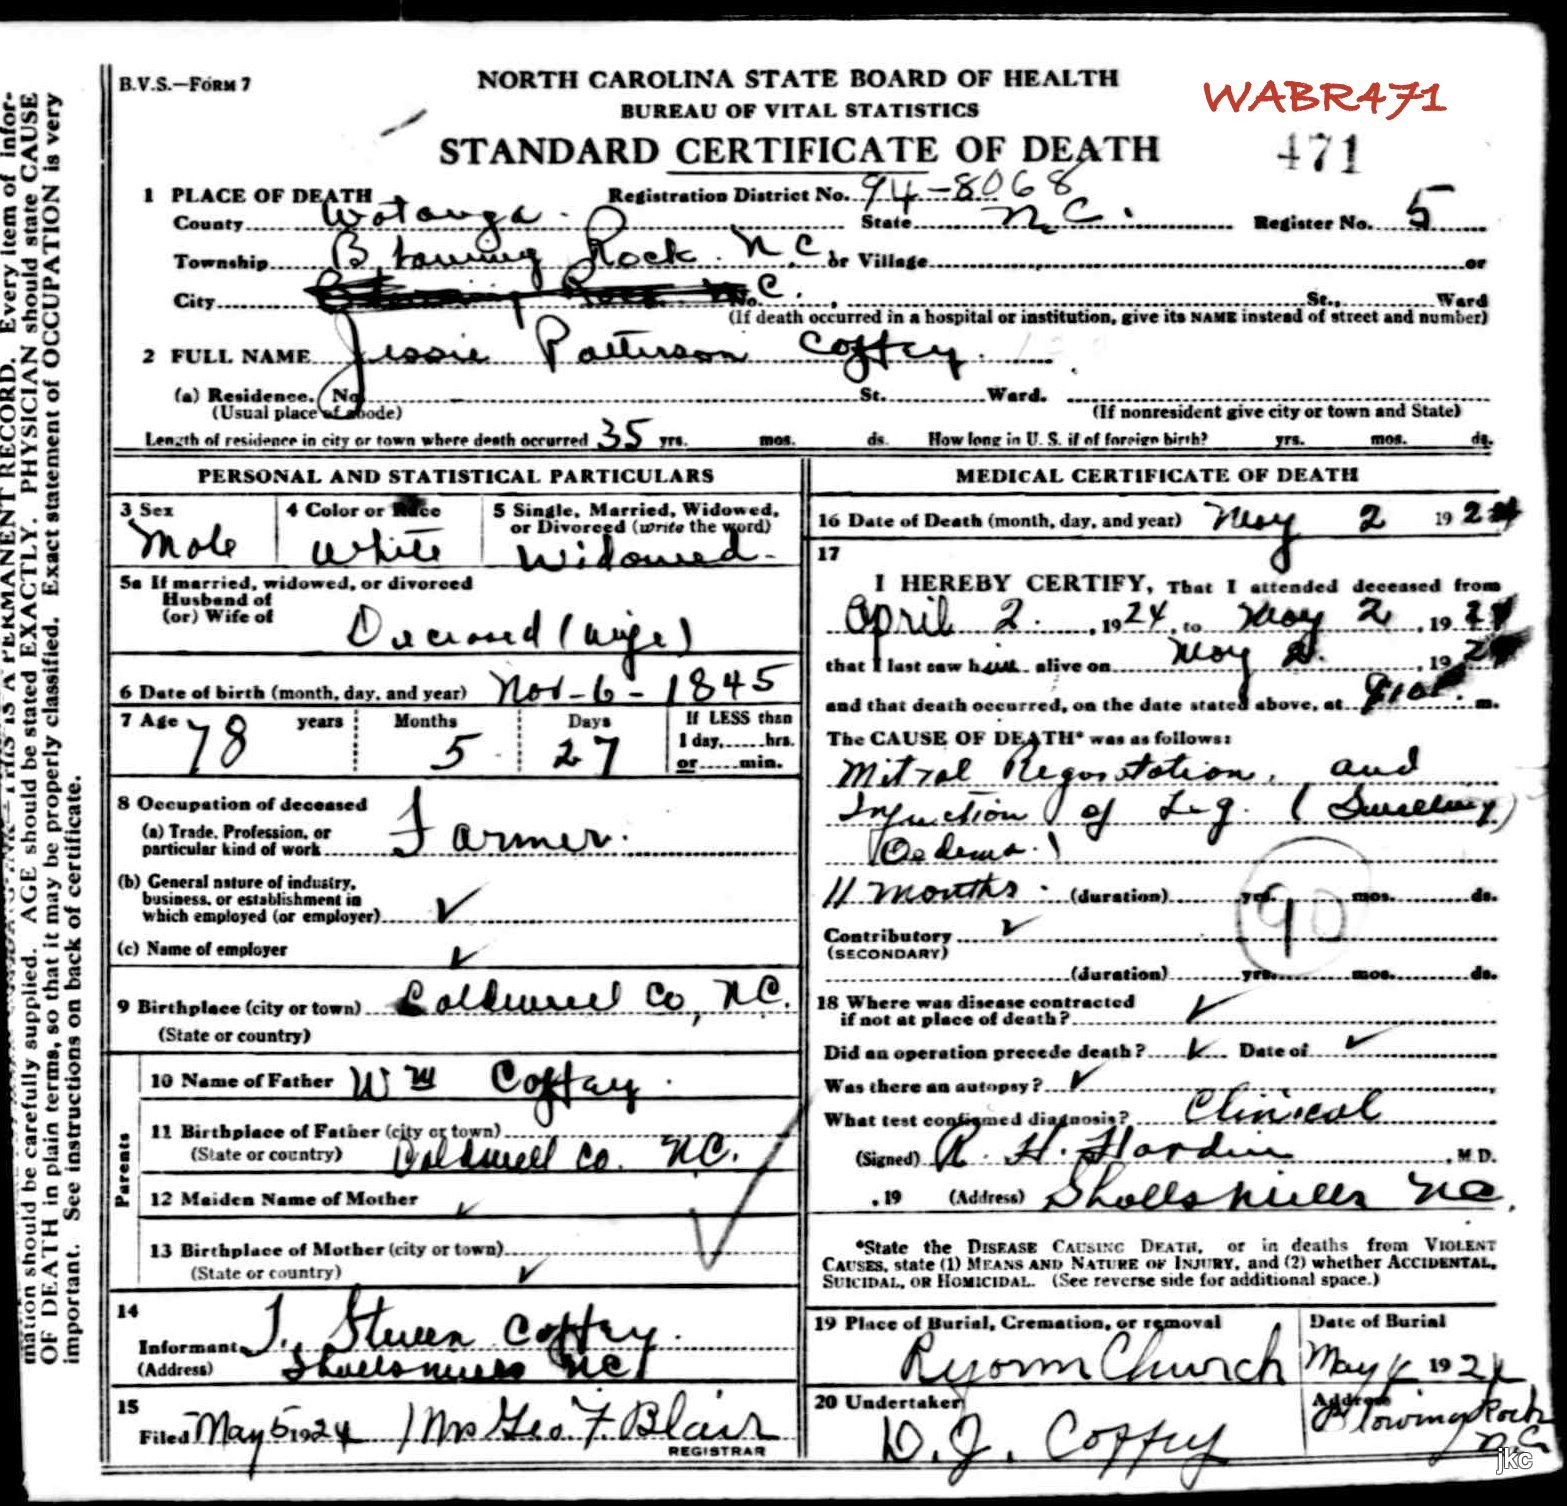 B.V.S.—FORM 7
NORTH CAROLINA STATE BOARD OF HEALTH
WABR471
BUREAU OF VITAL STATISTICS
STANDARD CERTIFICATE OF DEATH
471
1 PLACE OF DEATH Registration District No. 94-8068
County Watauga. State N.C. Register No. 5
Township Blowing Rock N.C. or Village or
City Blowing Rock N.C. No. St., Ward
(If death occurred in a hospital or institution, give its NAME instead of street and number)
2 FULL NAME Jessie Patterson Coffey.
(a) Residence. No. St. Ward.
(Usual place of abode) (If nonresident give city or town and State)
Length of residence in city or town where death occurred 35 yrs. mos. ds. How long in U. S. if of foreign birth? yrs. mos. ds.
PERSONAL AND STATISTICAL PARTICULARS
3 Sex 4 Color or Race 5 Single, Married, Widowed,
or Divorced (write the word)
Male White Widowed
5a If married, widowed, or divorced
Husband of
(or) Wife of
Deceased (wife)
6 Date of birth (month, day, and year) Nov-6-1845
7 Age 78 years Months 5 Days 27 If LESS than
1 day,......hrs.
or......min.
8 Occupation of deceased
(a) Trade, Profession, or
particular kind of work Farmer.
(b) General nature of industry,
business, or establishment in
which employed (or employer) ✓
(c) Name of employer ✓
9 Birthplace (city or town) Caldwell Co, N.C.
(State or country)
Parents
10 Name of Father Wm Coffey.
11 Birthplace of Father (city or town)
(State or country) Caldwell Co. N.C.
12 Maiden Name of Mother ✓
13 Birthplace of Mother (city or town)
(State or country) ✓
14
Informant J. Steven Coffey.
(Address) Shullsmills NC
15
Filed May 5 1924 Mrs Geo. F. Blair
REGISTRAR
MEDICAL CERTIFICATE OF DEATH
16 Date of Death (month, day, and year) May 2 1924
17
I HEREBY CERTIFY, That I attended deceased from
April 2. , 1924, to May 2 , 1924
that I last saw him alive on May 2. , 1924
and that death occurred, on the date stated above, at m.
The CAUSE OF DEATH* was as follows:
Mitral Regurgitation, and
Infection of Leg. (Swelling)
(Oedema.)
11 months. (duration) yrs. mos. ds.
90
Contributory ✓
(SECONDARY)
(duration) yrs. mos. ds.
18 Where was disease contracted
if not at place of death? ✓
Did an operation precede death? ✓ Date of ✓
Was there an autopsy? ✓
What test confirmed diagnosis? Clinical
(Signed) R. H. Hardin , M.D.
, 19 (Address) Shullsmills NC.
*State the DISEASE CAUSING DEATH, or in deaths from VIOLENT
CAUSES, state (1) MEANS AND NATURE OF INJURY, and (2) whether ACCIDENTAL,
SUICIDAL, OR HOMICIDAL. (See reverse side for additional space.)
19 Place of Burial, Cremation, or removal Date of Burial
Church May 4 1924
20 Undertaker Address
D. J. Coffey Blowing Rock
N.C.
jkc
mation should be carefully supplied. AGE should be stated EXACTLY. PHYSICIAN should state CAUSE
OF DEATH in plain terms, so that it may be properly classified. Exact statement of OCCUPATION is very
important. See instructions on back of certificate.
THIS IS A PERMANENT RECORD. Every item of infor-